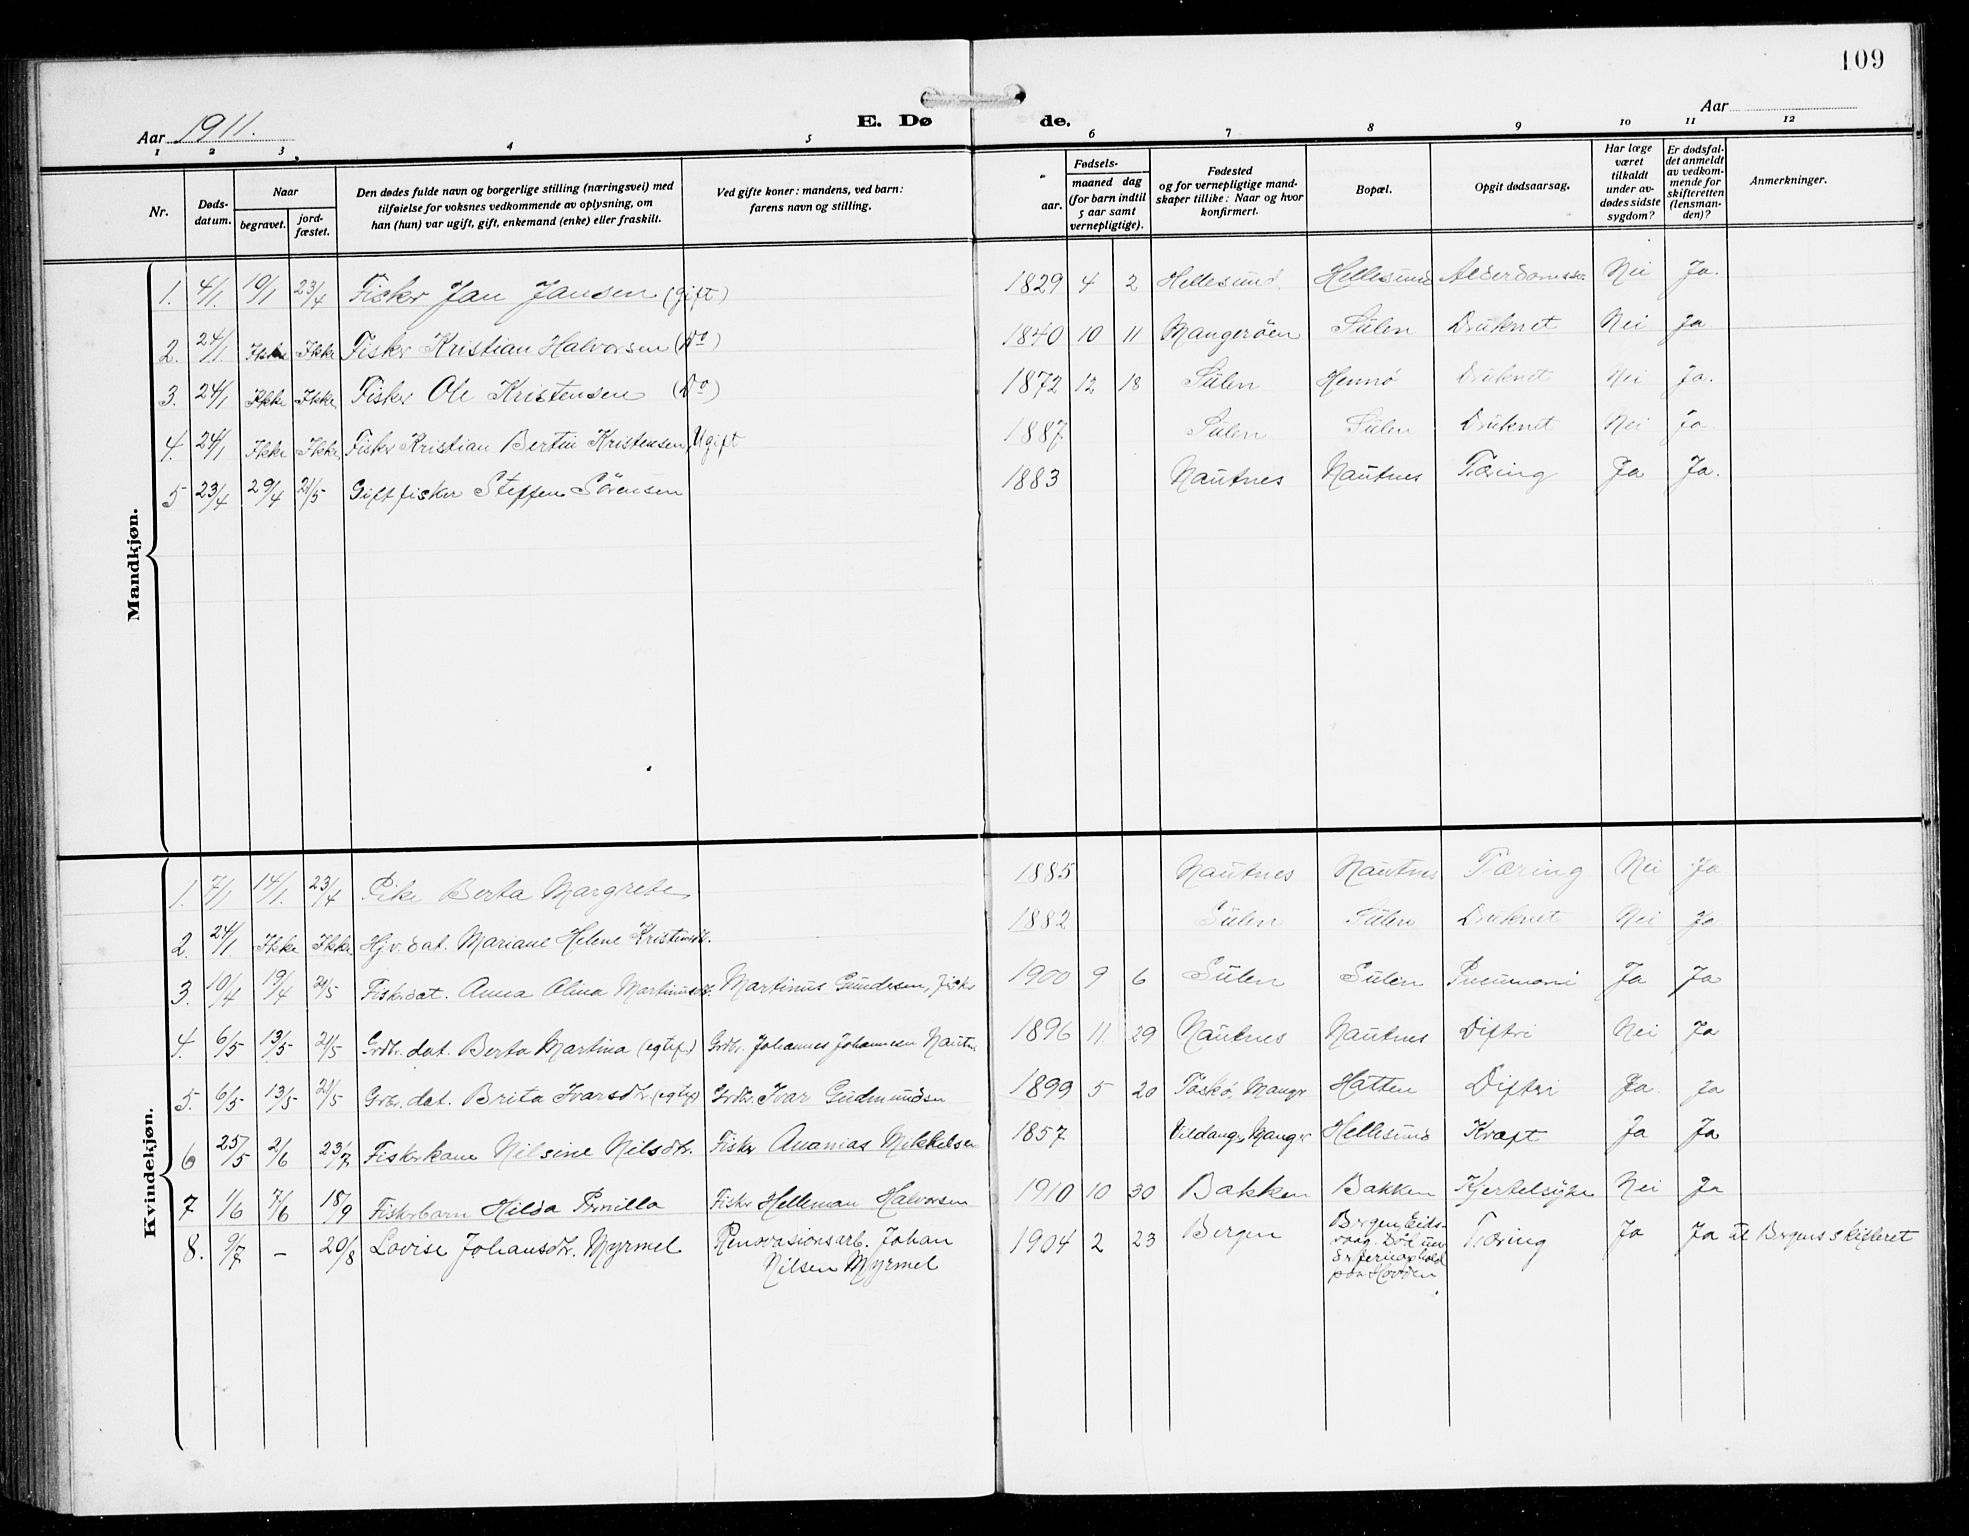 109
Aar 1911.
E. Døde.
Aar
1 2 3 4 5 6 7 8 9 10 11 12
Nr.
Døds-datum.
Naar
begravet.
jord-fæstet.
Den dødes fulde navn og borgerlige stilling (næringsvei) med
tilføielse for voksnes vedkommende av oplysning, om
han (hun) var ugift, gift, enkemand (enke) eller fraskilt.
Ved gifte koner: mandens, ved barn:
farens navn og stilling.
Fødsels-
aar.
maaned dag
(for barn indtil
5 aar samt
vernepligtige).
Fødested
og for vernepligtige mand-
skaper tillike: Naar og hvor
konfirmert.
Bopæl.
Opgit dødsaarsag.
Har læge
været
tilkaldt
under av-
dødes sidste
sygdom?
Er dødsfal-
det anmeldt
av vedkom-
mende for
skifteretten
(lensman-
den)?
Anmerkninger.
Mandkjøn.
1. 4/1. 10/1 23/4 Fisker Jan Jansen (gift) 1829 4 2 Hellesund. Hellesund Alderdomssv. Nei Ja.
2. 24/1 Ikke Ikke Fisker Kristian Halvorsen (Do) 1840 10 11 Mangerøen Sülen Druknet Nei Ja
3. 24/1 Ikke Ikke Fisker Ole Kristensen (Do) 1872 12 18 Sülen Hennö Druknet Nei Ja.
4. 24/1 Ikke Ikke Fisker Kristian Bertin Kristensen, Ugift 1887 Sülen Sülen Druknet Nei Ja
5 23/4 29/4 21/5 Gift fisker Steffen Sörensen 1883 Nautnes Nautnes Tæring Ja Ja.
Kvindekjøn.
1. 7/1 14/1. 23/4 Pike Berta Margrete 1885 Nautnes Nautnes Tæring Nei Ja
2. 24/1. Ikke Ikke Hjv. dat. Mariane Helene Kristensdtr. 1882 Sülen Sülen Druknet Nei Ja
3. 10/4 19/4 21/5 Fiskerdat. Anna Olina Martinusdtr. Martinus Gundersen, fisker 1900 9 6 Sülen Sülen Pneumoni Ja Ja
4. 6/5 13/5 21/5 Grdbr. dat. Berta Martina (egtef.) Grdbr. Johannes Johannesen Nautnes 1896 11. 29 Nautnes Nautnes Diftri Nei Ja
5. 6/5 13/5 21/5 Grbr. dat. Brita Ivarsdtr. (egtef.) Grdbr. Ivar Gudmundsen 1899 5 20 Toskö, Manger Hatten Diftri Ja. Ja
6 25/5 2/6 23/7 Fiskerkone Nilsine Nilsdtr. Fisker Ananias Mikkelsen 1857 Vildang, Manger Hellesund Kræft Ja Ja
7 1/6 7/6 18/9 Fiskerbarn Hilda Pernilla Fisker Helleman Halvorsen 1910 10 30 Bakken Bakken Kjertelsyke Nei Ja
8. 9/7 – 20/8 Lovise Johansdtr. Myrmel Renovasionsarb. Johan
Nilsen Myrmel 1904 2 23 Bergen Bergen, Eids-
vaag. Död un-
der ferieophold
paa Hovden. Tæring Ja Ja til Bergens skifteret